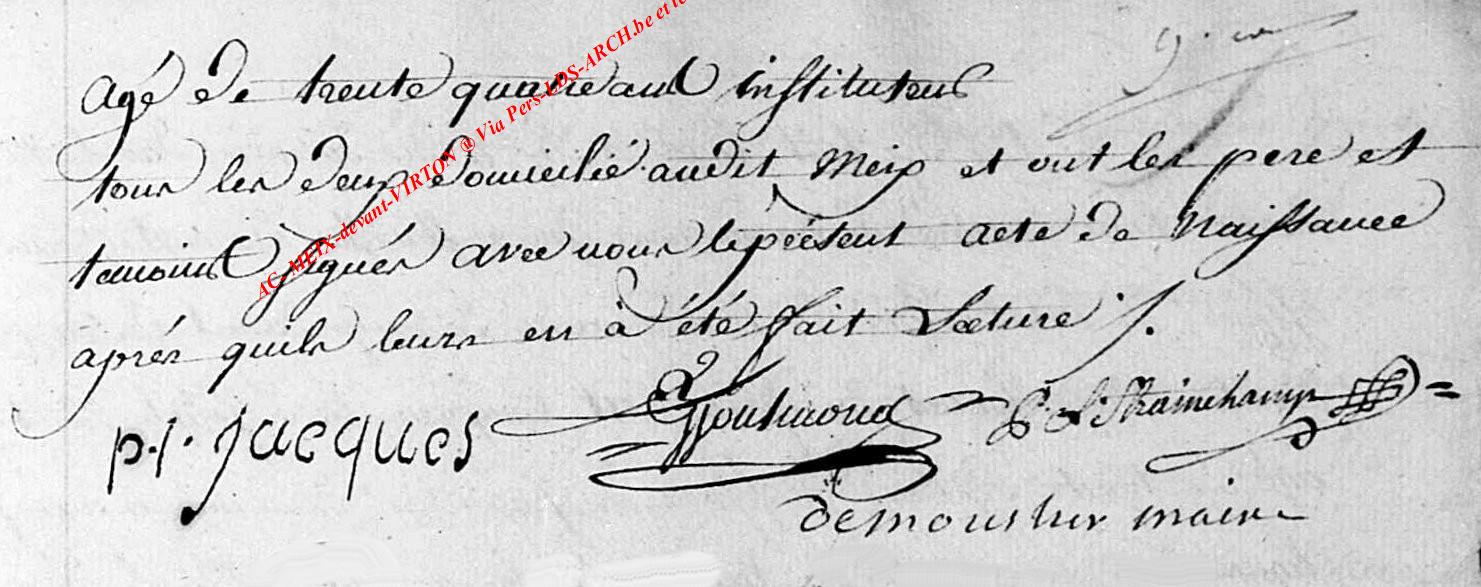 agé de trente quatre ans instituteur
tous les deux domicilié audit Meix et ont les pere et
temoins signés avec nous le présent acte de Naissance
aprés quils leurs en à été fait Lecture ./.
p.j. jacques
P. J. Strainchamps
demoustier maire
AC. MEIX-devant-VIRTON ® Via Pers-LDS-ARCH.be et